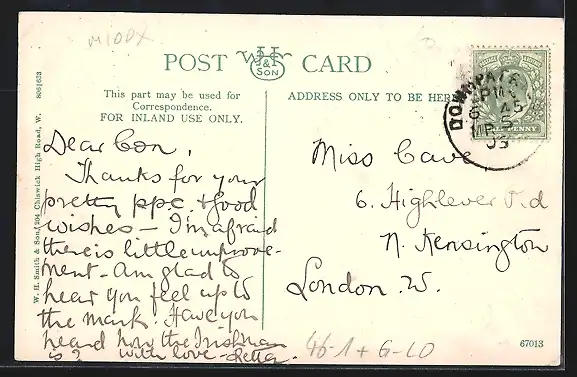 M100X
POST WHS & SON CARD
This part may be used for
Correspondence.
FOR INLAND USE ONLY.
ADDRESS ONLY TO BE HERE
W. H. Smith & Son, 204 Chiswick High Road, W.
DOWNPATRICK
6 45 PM
5
09
HALFPENNY
Dear Con,
Thanks for your
pretty p.p.c. & good
wishes – I'm afraid
there is little improve-
ment – Am glad to
hear you feel up to
the mark. Have you
heard how the Irishman
is? With love – Letta.
Miss Cave
6. Highlever Rd
N. Kensington
London. W.
46-1 + G-LO
67013